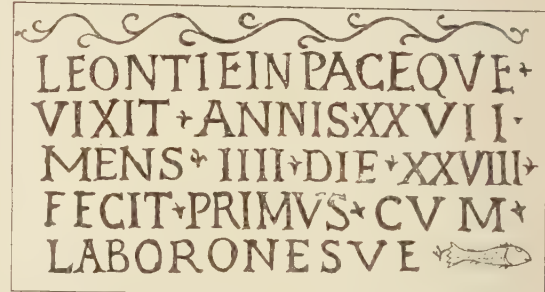 LEONTIEINPACEQVE
VIXIT ANNIS XXVII
MENS IIII DIE XXVIII
FECIT PRIMVS CVM
LABORONESVE